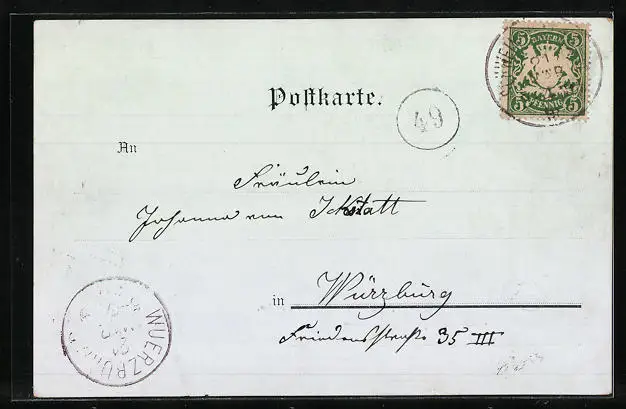 5 BAYERN 5
5 PFENNIG 5
Postkarte.
49
An
Fräulein
Johanna von Ickstatt
in Würzburg
Friedensstraße 35 III
WUERZBURG